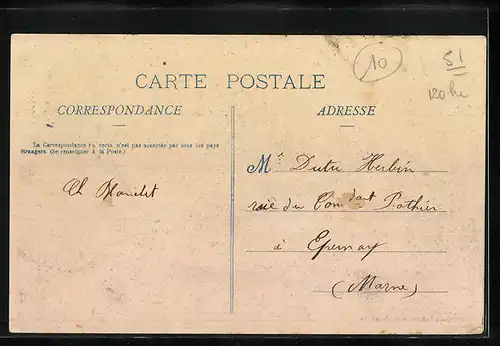 10
51
120 kc
CARTE POSTALE
CORRESPONDANCE
ADRESSE
La Correspondance au recto n'est pas acceptée par tous les pays
étrangers. (Se renseigner à la Poste.)
Mr Dutu Herbin
Ch Blanchet
rue du Comdant Pothier
à Epernay
(Marne)